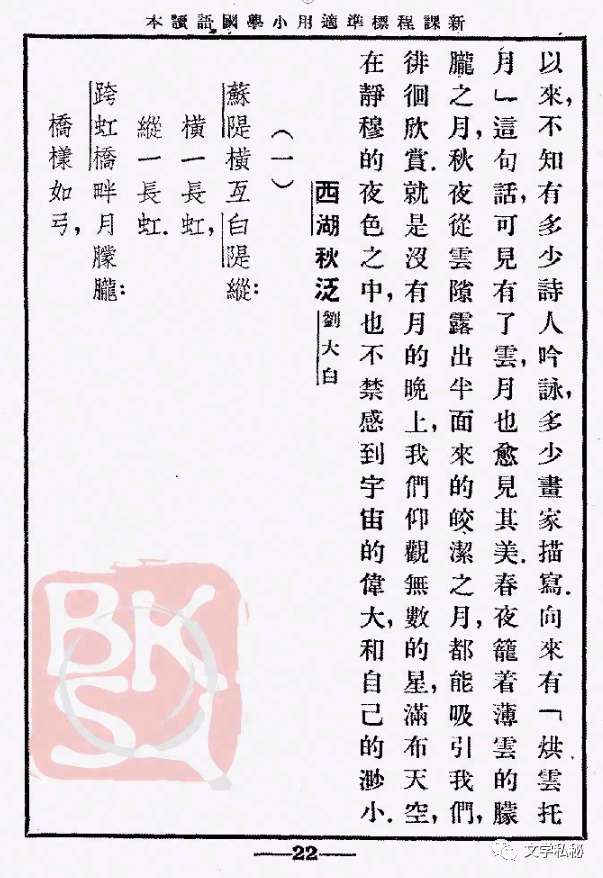 新課程標準適用小學國語讀本
以來，不知有多少詩人吟詠，多少畫家描寫．向來有「烘雲托
月」這句話，可見有了雲，月也愈見其美．春夜籠着薄雲的朦
朧之月，秋夜從雲隙露出半面來的皎潔之月，都能吸引我們，
徘徊欣賞．就是沒有月的晚上，我們仰觀無數的星，滿布天空，
在靜穆的夜色之中，也不禁感到宇宙的偉大，和自己的渺小．
西湖秋泛 劉大白
（一）
蘇隄橫亙白隄縱：
橫一長虹，
縱一長虹．
跨虹橋畔月朦朧：
橋樣如弓，
22
BK
SY
文学私秘